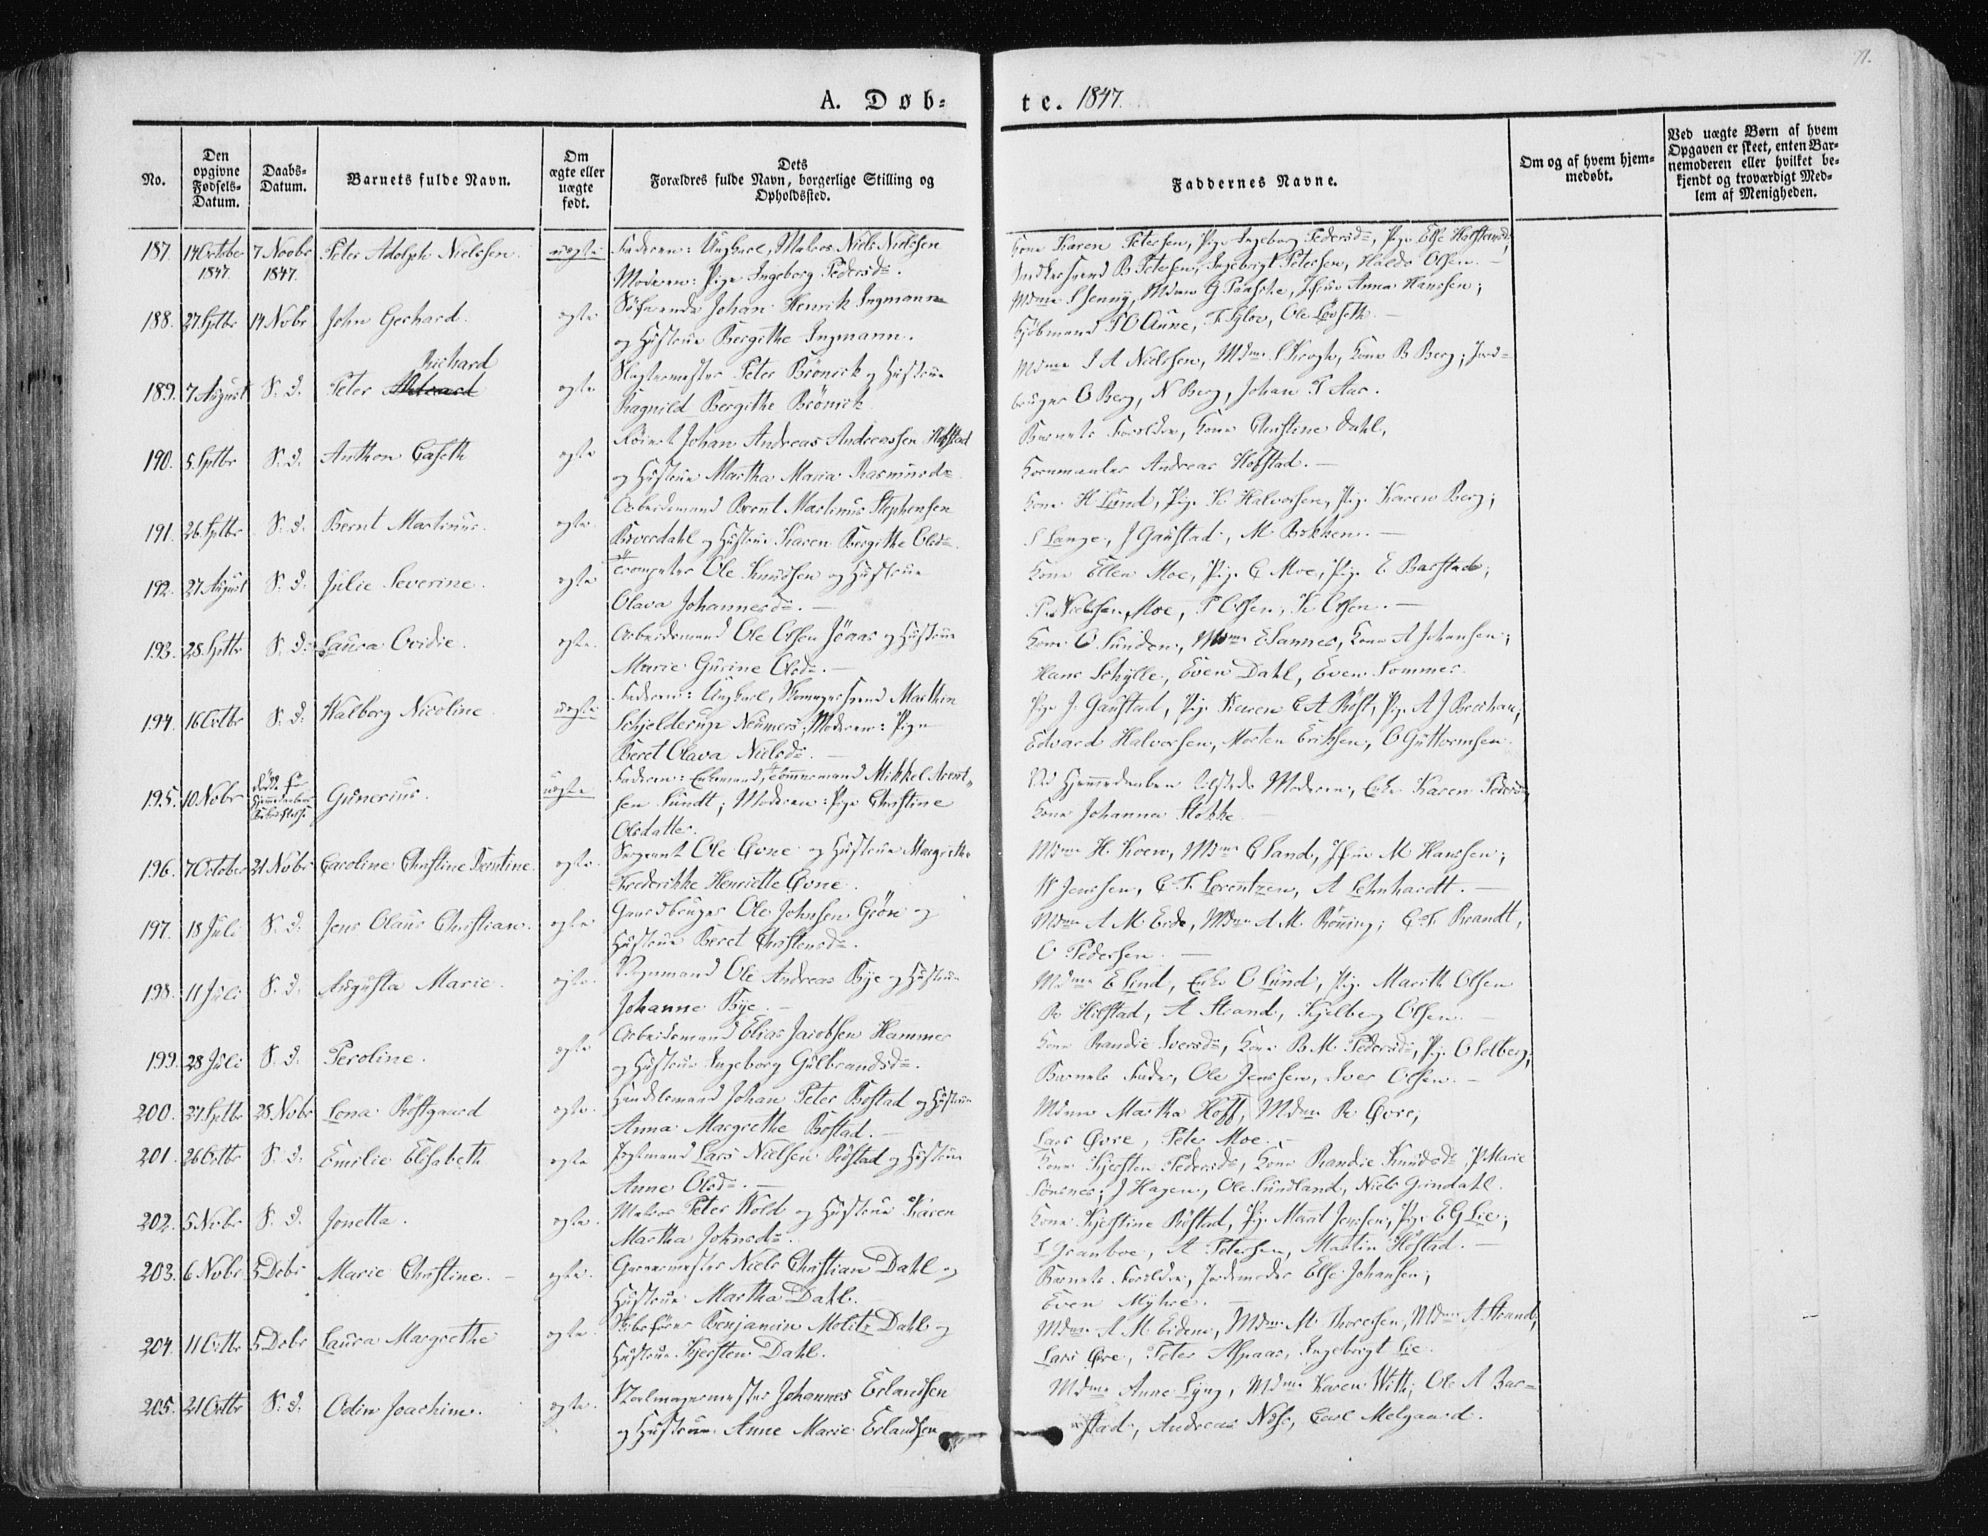 71.
A. Døb-
te. 1847.
No.
Den opgivne Fødsels-Datum.
Daabs-Datum.
Barnets fulde Navn.
Om ægte eller uægte født.
Dets Forældres fulde Navn, borgerlige Stilling og Opholdssted.
Faddernes Navne.
Om og af hvem hjemmedøbt.
Ved uægte Børn af hvem Opgaven er skeet, enten Barnemoderen eller hvilket bekjendt og troværdigt Medlem af Menigheden.
187. 14 October 1847. 7 Novbr 1847. Peter Adolph Nielsen. uægte Faderen: Ungkarl, Matros Niels Nielsen
Moderen: Pige Ingeborg Pedersd.
Kone Karen Petersen, Pige Ingeborg Pedersd, Pige Else
B Petersen, Ingebrigt Petersen, Olsen.
188. 27 Sptbr 14 Novbr John Gerhard. ægte Johan Henrik Ingmann
og Hustrue Bergithe Ingmann.
Mdme S Jenny, Mdme G Paasche, Jfrue Anna Hanssen;
Kjøbmand P O Aune, Ole Løvseth.
189. 7 August S. d. Peter Richard ægte Slagtermester Peter Brönick og Hustrue
Ragnild Bergithe Brönick.
Mdme S A Nielsen, Mdme S Krogh, Kone B Berg; Jord-
bruger O Berg, N Berg, Johan P Aas.
190. 5 Sptbr S. d. Anthon Caseth ægte Johan Andreas Andreassen Hofstad
og Hustrue Martha Maria Rasmusd
Barnets Forældre, Kone Christine Dahl,
Andreas Hofstad.
191. 26 Sptbr S. d. Bernt Martinus. ægte. Arbeidsmand Bernt Martinus Stephensen
Kverdahl og Hustrue Karen Bergithe Olsd.
Kone H Lund, Pige K Halvorsen, Pige Karen Berg;
S Lange, J Gaustad, M Bakken.
192. 27 August S. d. Julie Severine. ægte Trompeter Ole Knudsen og Hustrue
Olava Johannesd.
Kone Ellen Moe, Pige C Moe, Pige E Barstad;
P. Nielsen Moe, P Olsen, K Olsen.
193. 28 Sptbr S. d. Laura Ovidie. ægte. Arbeidsmand Ole Olsen og Hustrue
Marie Gurine Olsd.
Kone O Lunden, Mdme E Sannes, Kone A Johansen;
Hans Schylle, Even Dahl, Even Sommer.
194. 16 Octbr S. d. Walborg Nicoline. uægte Faderen: Ungkarl, Skomagersvend Marthin
Schjelderup Neumers, Moderen: Pige
Beret Olava Nielsd.
Pige J. Gaustad, Pige Karen E A Röst, Pige A J
Edvard Halvorsen, Morten Eriksen, O Guttormsen.
195. 10 Novbr Gunerius. uægte Faderen: Enkemand, Tømmermand Mikkel Arent-
sen Sundt; Moderen: Pige Christine
Olsdatter.
Ved Hjemmedaaben tilstede Moderen, Enke Karen
Kone Johanna Stokke.
196. 7 October 21 Novbr Caroline Christine Berntine. ægte. Sergeant Ole Qvne og Hustrue Margrethe
Frederikke Henriette Qvne.
Mdme H. Koen, Mdme C Sand, Jfrue M Hanssen;
W Jenssen, C. F. Lorentzen, A Lehnhardt.
197. 18 Juli S. d. Jens Olaus Christian. ægte Gaardbruger Ole Johnsen og
Hustrue Beret Christensd.
Mdme A M Eide, Mdme A M Rönning; C. F. Brandt,
O Pedersen.
198. 11 Juli S. d. Augusta Marie. ægte. Vognmand Ole Andreas Bye og Hustrue
Johanne Bye.
Mdme E Lind, Enke O Lund, Pige Marith Olsen
R Hilstad, A Strand, Kjelberg Olsen.
199. 28 Juli S. d. Peroline. ægte Arbeidsmand Elias Jacobsen Hammer
og Hustrue Ingeborg Gulbrandsd.
Kone Randie Iversd, Kone B. M. Pedersd, Pige O Solberg,
Barnets Fader, Ole Jenssen, Iver Olsen.
200. 27 Sptbr 28 Novbr Lena Röstgaard ægte. Handelsmand Johan Peter Bostad og Hustrue
Anna Margrethe Bostad.
Mdme Martha Hoff, Mdme R Qvre,
Lars Qvre, Peter Moe.
201. 26 Octbr S. d. Emilie Elisabeth ægte Lars Nielsen Röstad og Hustrue
Anne Olsd.
Kone Kjersten Pedersd, Kone Randie Knudsd, P Marie
J Hagen, Ole Sundland, Niels Grindahl.
202. 5 Novbr S. d. Jonetta. ægte. Matros Peter Wold og Hustrue Karen
Martha Johnsd.
Kone Kjerstine Röstad, Pige Marit Jenssen, Pige E G Lie;
L Granboe, A Petersen, Martin Hofstad.
203. 6 Novbr 5 Decbr Marie Christine. ægte. Garvermester Niels Christian Dahl og
Hustrue Martha Dahl.
Barnets Forældre, Jordemoder Else Johansen;
Even Myhre.
204. 11 Octbr 5 Decbr Laura Margrethe ægte. Skibsfører Benjamin Molitz Dahl og
Hustrue Kjersten Dahl.
Mdme A M Eidem, Mdme M Thoresen, Mdme A Strand,
Lars Qvre, Peter Aspaas, Ingebrigt Lie.
205. 21 Octbr S. d. Odin Joachim. ægte. Stolmagermester Johannes Erlandsen
og Hustrue Anne Marie Erlandsen
Mdme Anne Lyng, Mdme Karen With; Ole A Bar-
stad, Andreas Næss, Carl Melgaard.